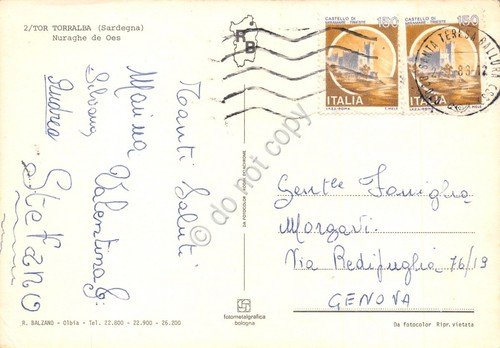 2/TOR TORRALBA (Sardegna)
Nuraghe de Oes
R
B
CASTELLO DI
MIRAMARE - TRIESTE
150
ITALIA
CASTELLO DI
MIRAMARE - TRIESTE
150
ITALIA
SANTA TERESA GALLURA
Tanti Saluti
Marina Valentina
Silvana
Andrea Stefano
do not copy
DA FOTOCOLOR
Gent.le Famiglia
Morgavi
Via Redipuglia 76/19
GENOVA
fotometalgrafica
bologna
R. BALZANO - Olbia - Tel. 22.800 - 22.900 - 26.200
Da fotocolor Ripr. vietata